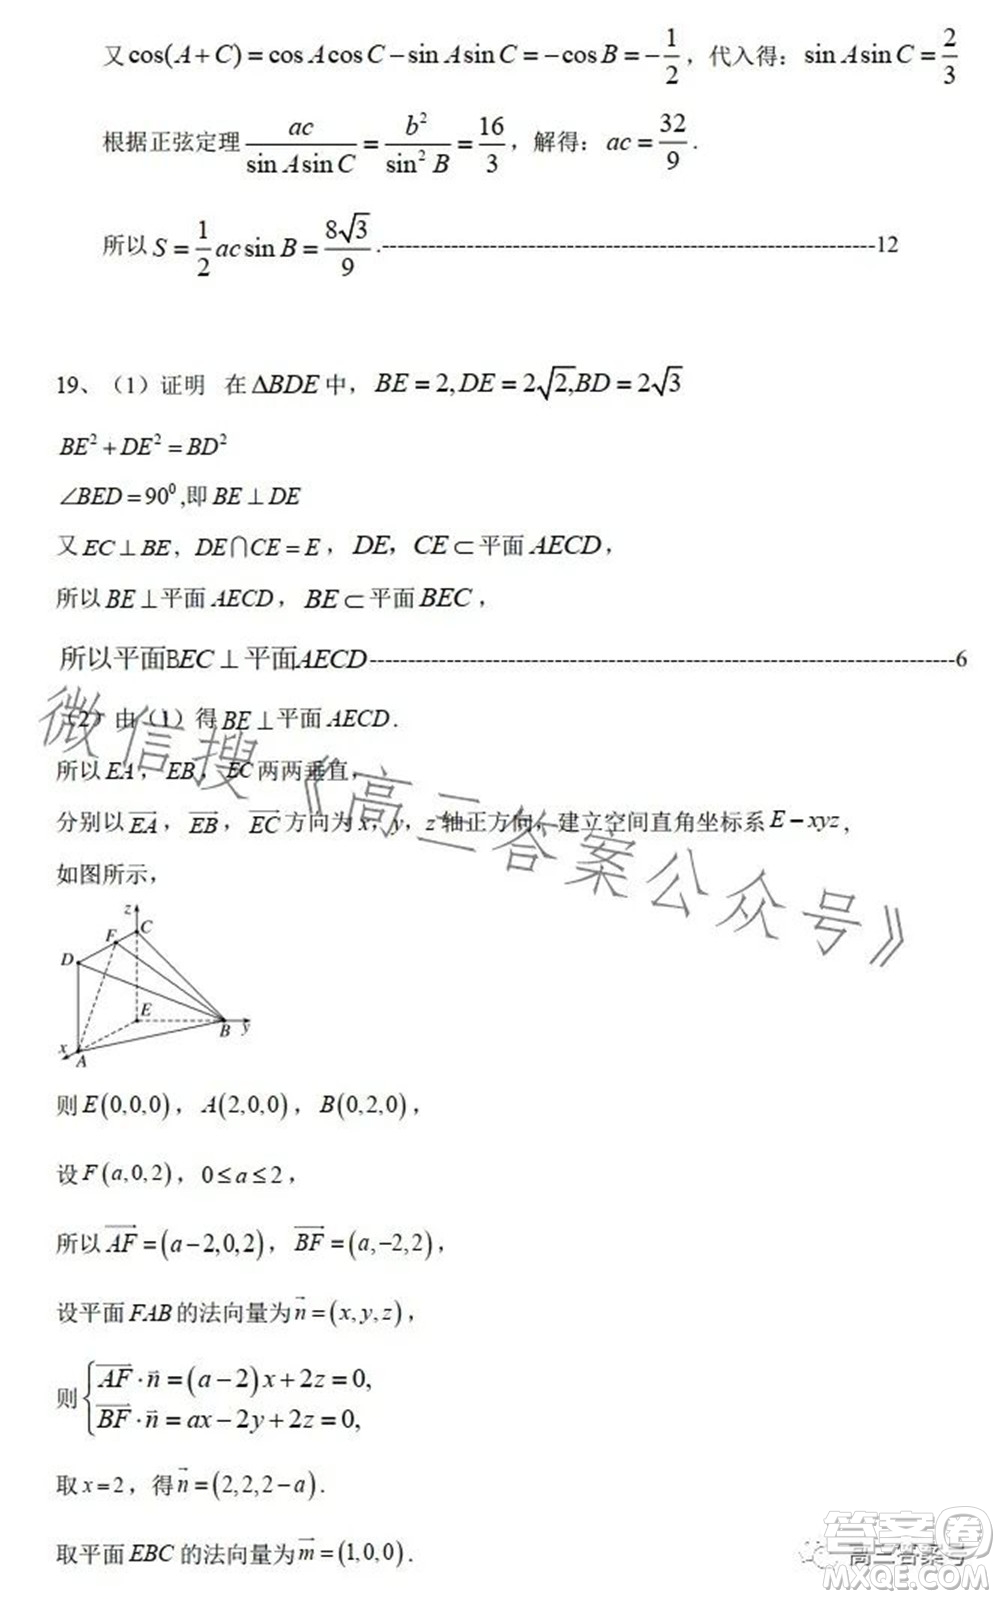 又cos(A+C)=cosAcosC−sinAsinC=−cosB=−1/2，代入得：sinAsinC=2/3
根据正弦定理ac/(sinAsinC)=b²/sin²B=16/3，解得：ac=32/9.
所以S=1/2acsinB=8√3/9.----------------------------------------------------------------12
19、（1）证明 在ΔBDE中，BE=2,DE=2√2,BD=2√3
BE²+DE²=BD²
∠BED=90⁰,即BE⊥DE
又EC⊥BE，DE∩CE=E，DE，CE⊂平面AECD，
所以BE⊥平面AECD，BE⊂平面BEC，
所以平面BEC⊥平面AECD----------------------------------------------------------------------------6
（2）由（1）得BE⊥平面AECD.
所以EA，EB，EC两两垂直，
分别以EA，EB，EC方向为x，y，z轴正方向，建立空间直角坐标系E−xyz，
如图所示，
z
F C
D
E
B y
x A
则E(0,0,0)，A(2,0,0)，B(0,2,0)，
设F(a,0,2)，0≤a≤2，
所以AF=(a−2,0,2)，BF=(a,−2,2)，
设平面FAB的法向量为n=(x,y,z)，
则{AF·n=(a−2)x+2z=0,
BF·n=ax−2y+2z=0,
取x=2，得n=(2,2,2−a).
取平面EBC的法向量为m=(1,0,0).
微信搜《高三答案公众号》
高三答案号
答案卷
MXQE.COM